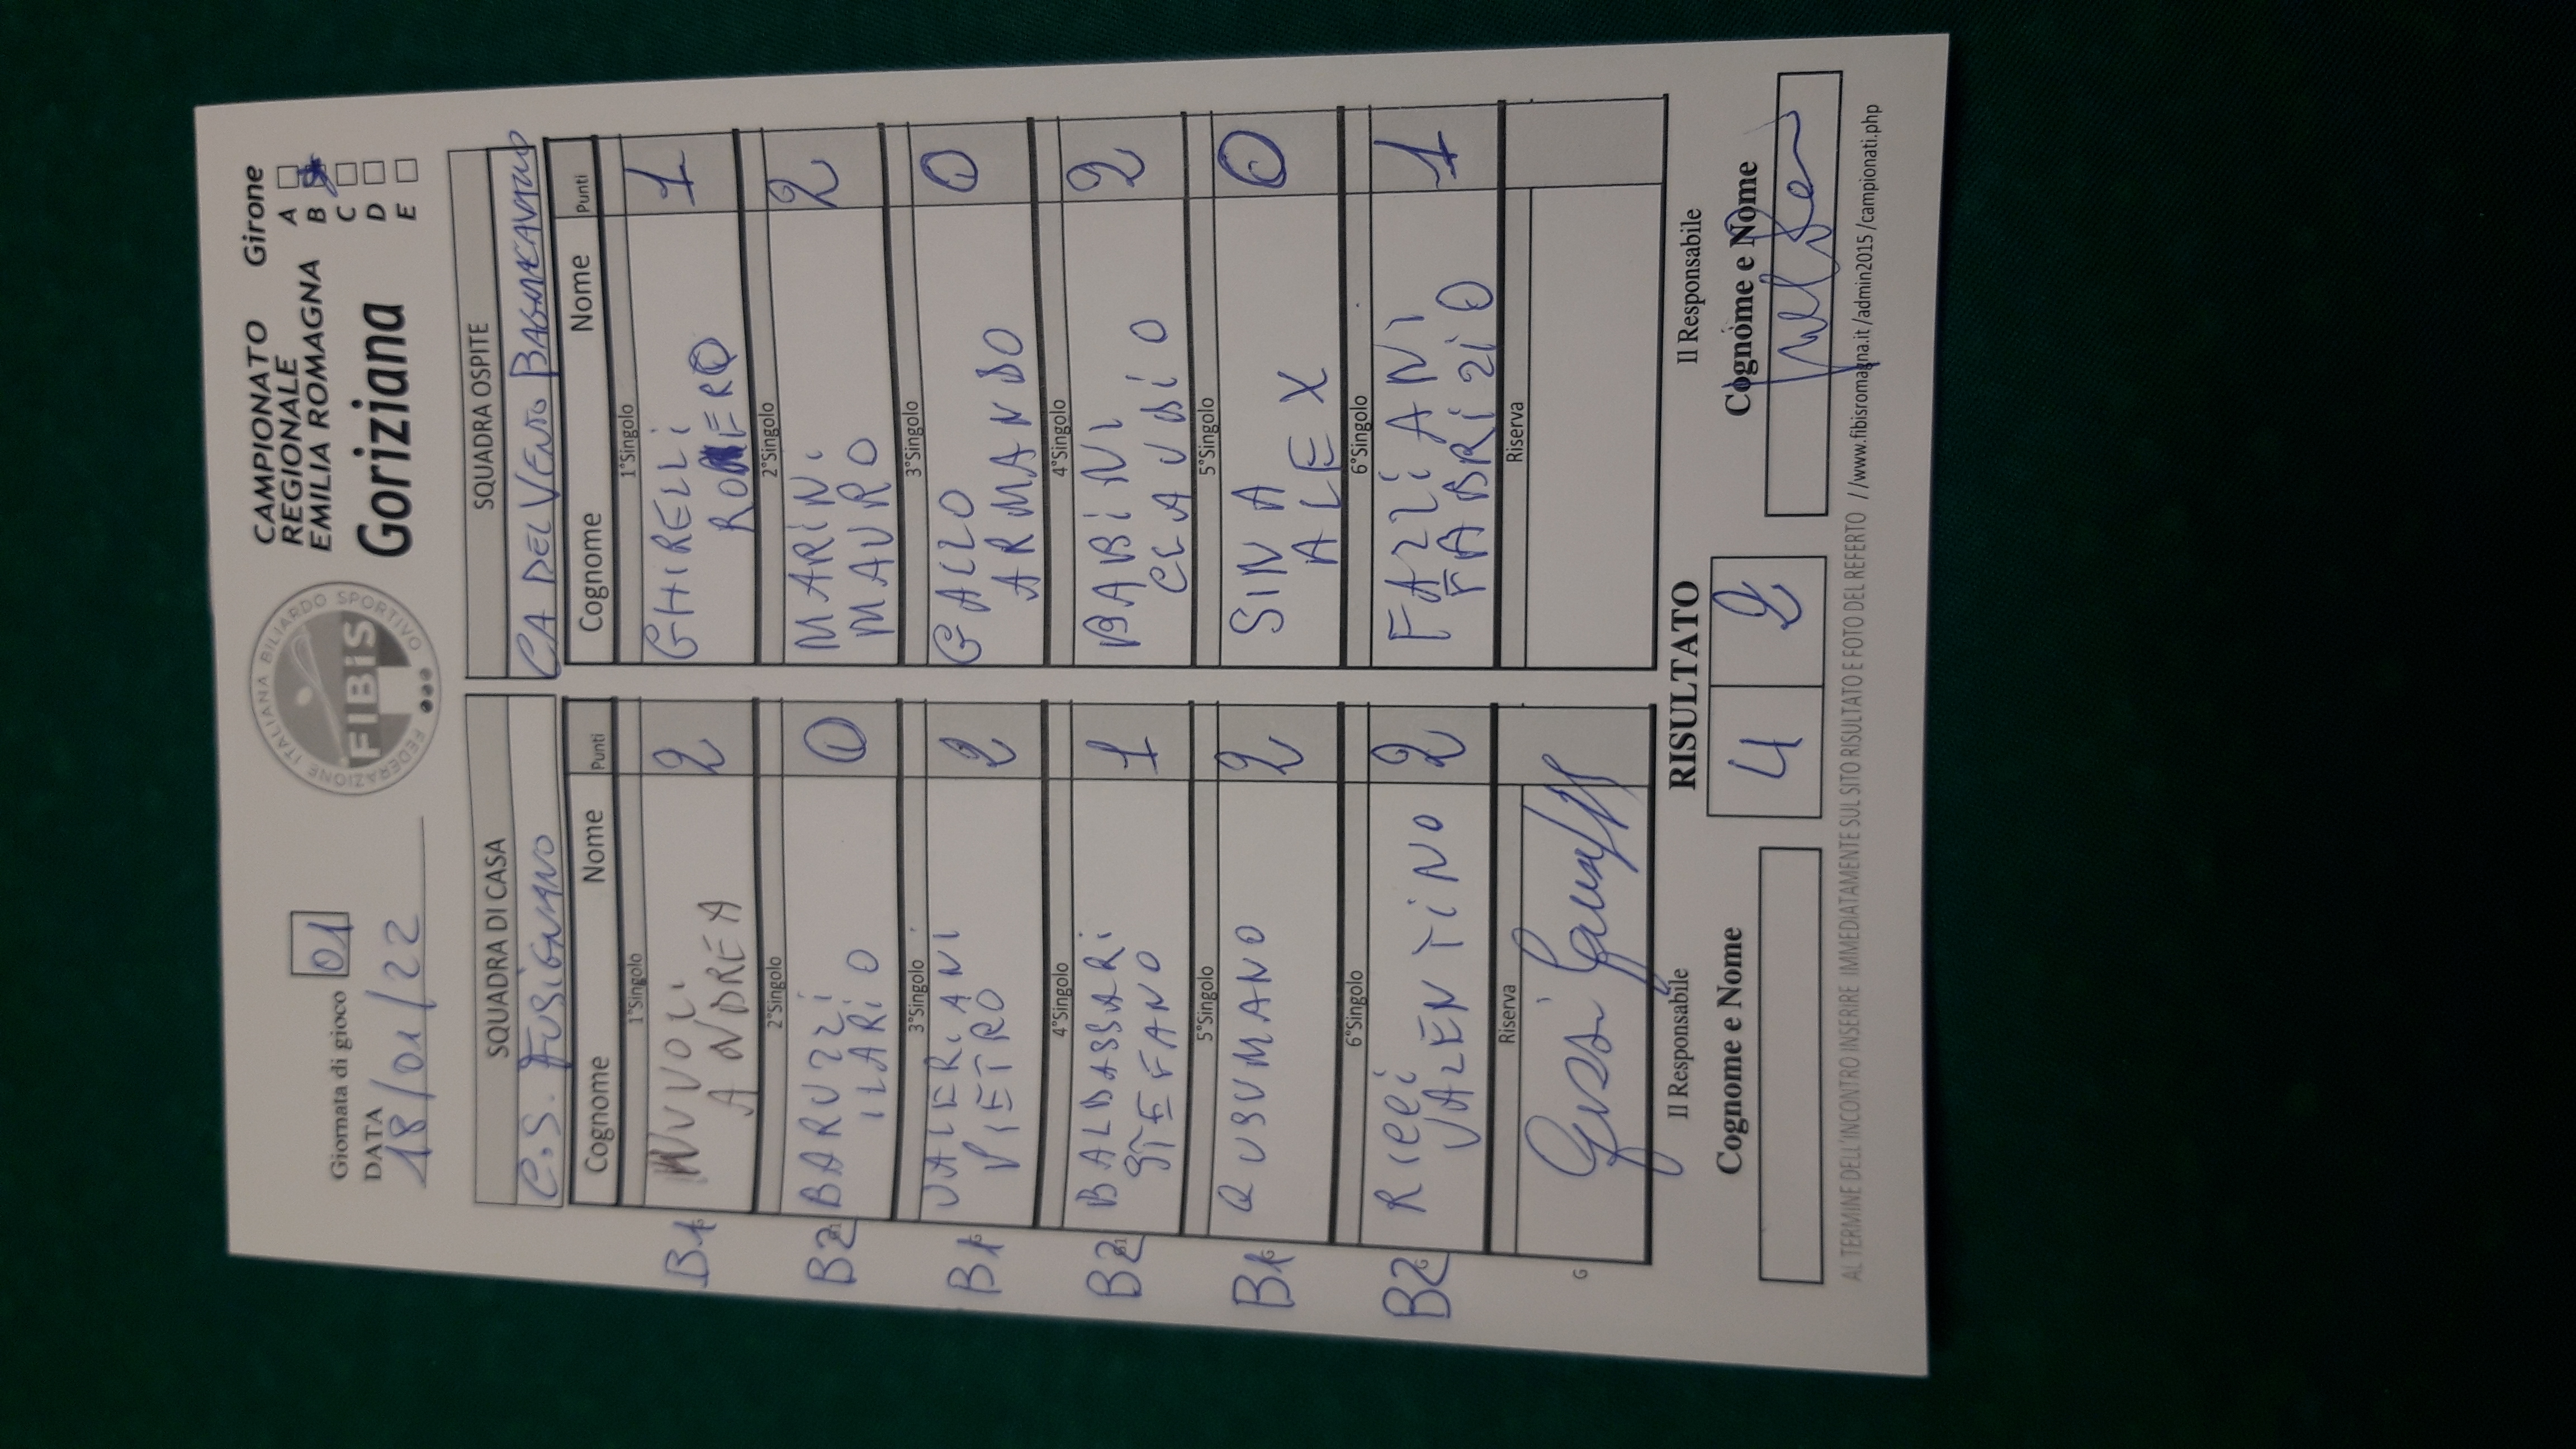 Giornata di gioco 01
DATA
18/01/22
FEDERAZIONE ITALIANA BILIARDO SPORTIVO
FIBIS
CAMPIONATO
REGIONALE
EMILIA ROMAGNA
Goriziana
Girone
A
B
C
D
E
SQUADRA DI CASA
C.S. FUSIGNANO
Cognome Nome Punti
1°Singolo
B1 NUVOLI 2
ANDREA
2°Singolo
B2 BARUZZI 0
ILARIO
3°Singolo
B1 VALERIANI 2
PIETRO
4°Singolo
B2 BALDASSARI 1
STEFANO
5°Singolo
B1 QUSUMANO 2
6°Singolo
B2 RICCI 2
VALENTINO
Riserva
G
SQUADRA OSPITE
CA DEL VENTO BAGNACAVALLO
Cognome Nome Punti
1°Singolo
GHIRELLI 1
ROMERO
2°Singolo
MARINI 2
MAURO
3°Singolo
GALLO 0
ARMANDO
4°Singolo
BABINI 2
CLAUDIO
5°Singolo
SINA 0
ALEX
6°Singolo
FAZZIANI 1
FABRIZIO
Riserva
Il Responsabile
Cognome e Nome
RISULTATO
4 2
Il Responsabile
Cognome e Nome
AL TERMINE DELL'INCONTRO INSERIRE IMMEDIATAMENTE SUL SITO RISULTATO E FOTO DEL REFERTO //www.fibisromagna.it/admin2015/campionati.php